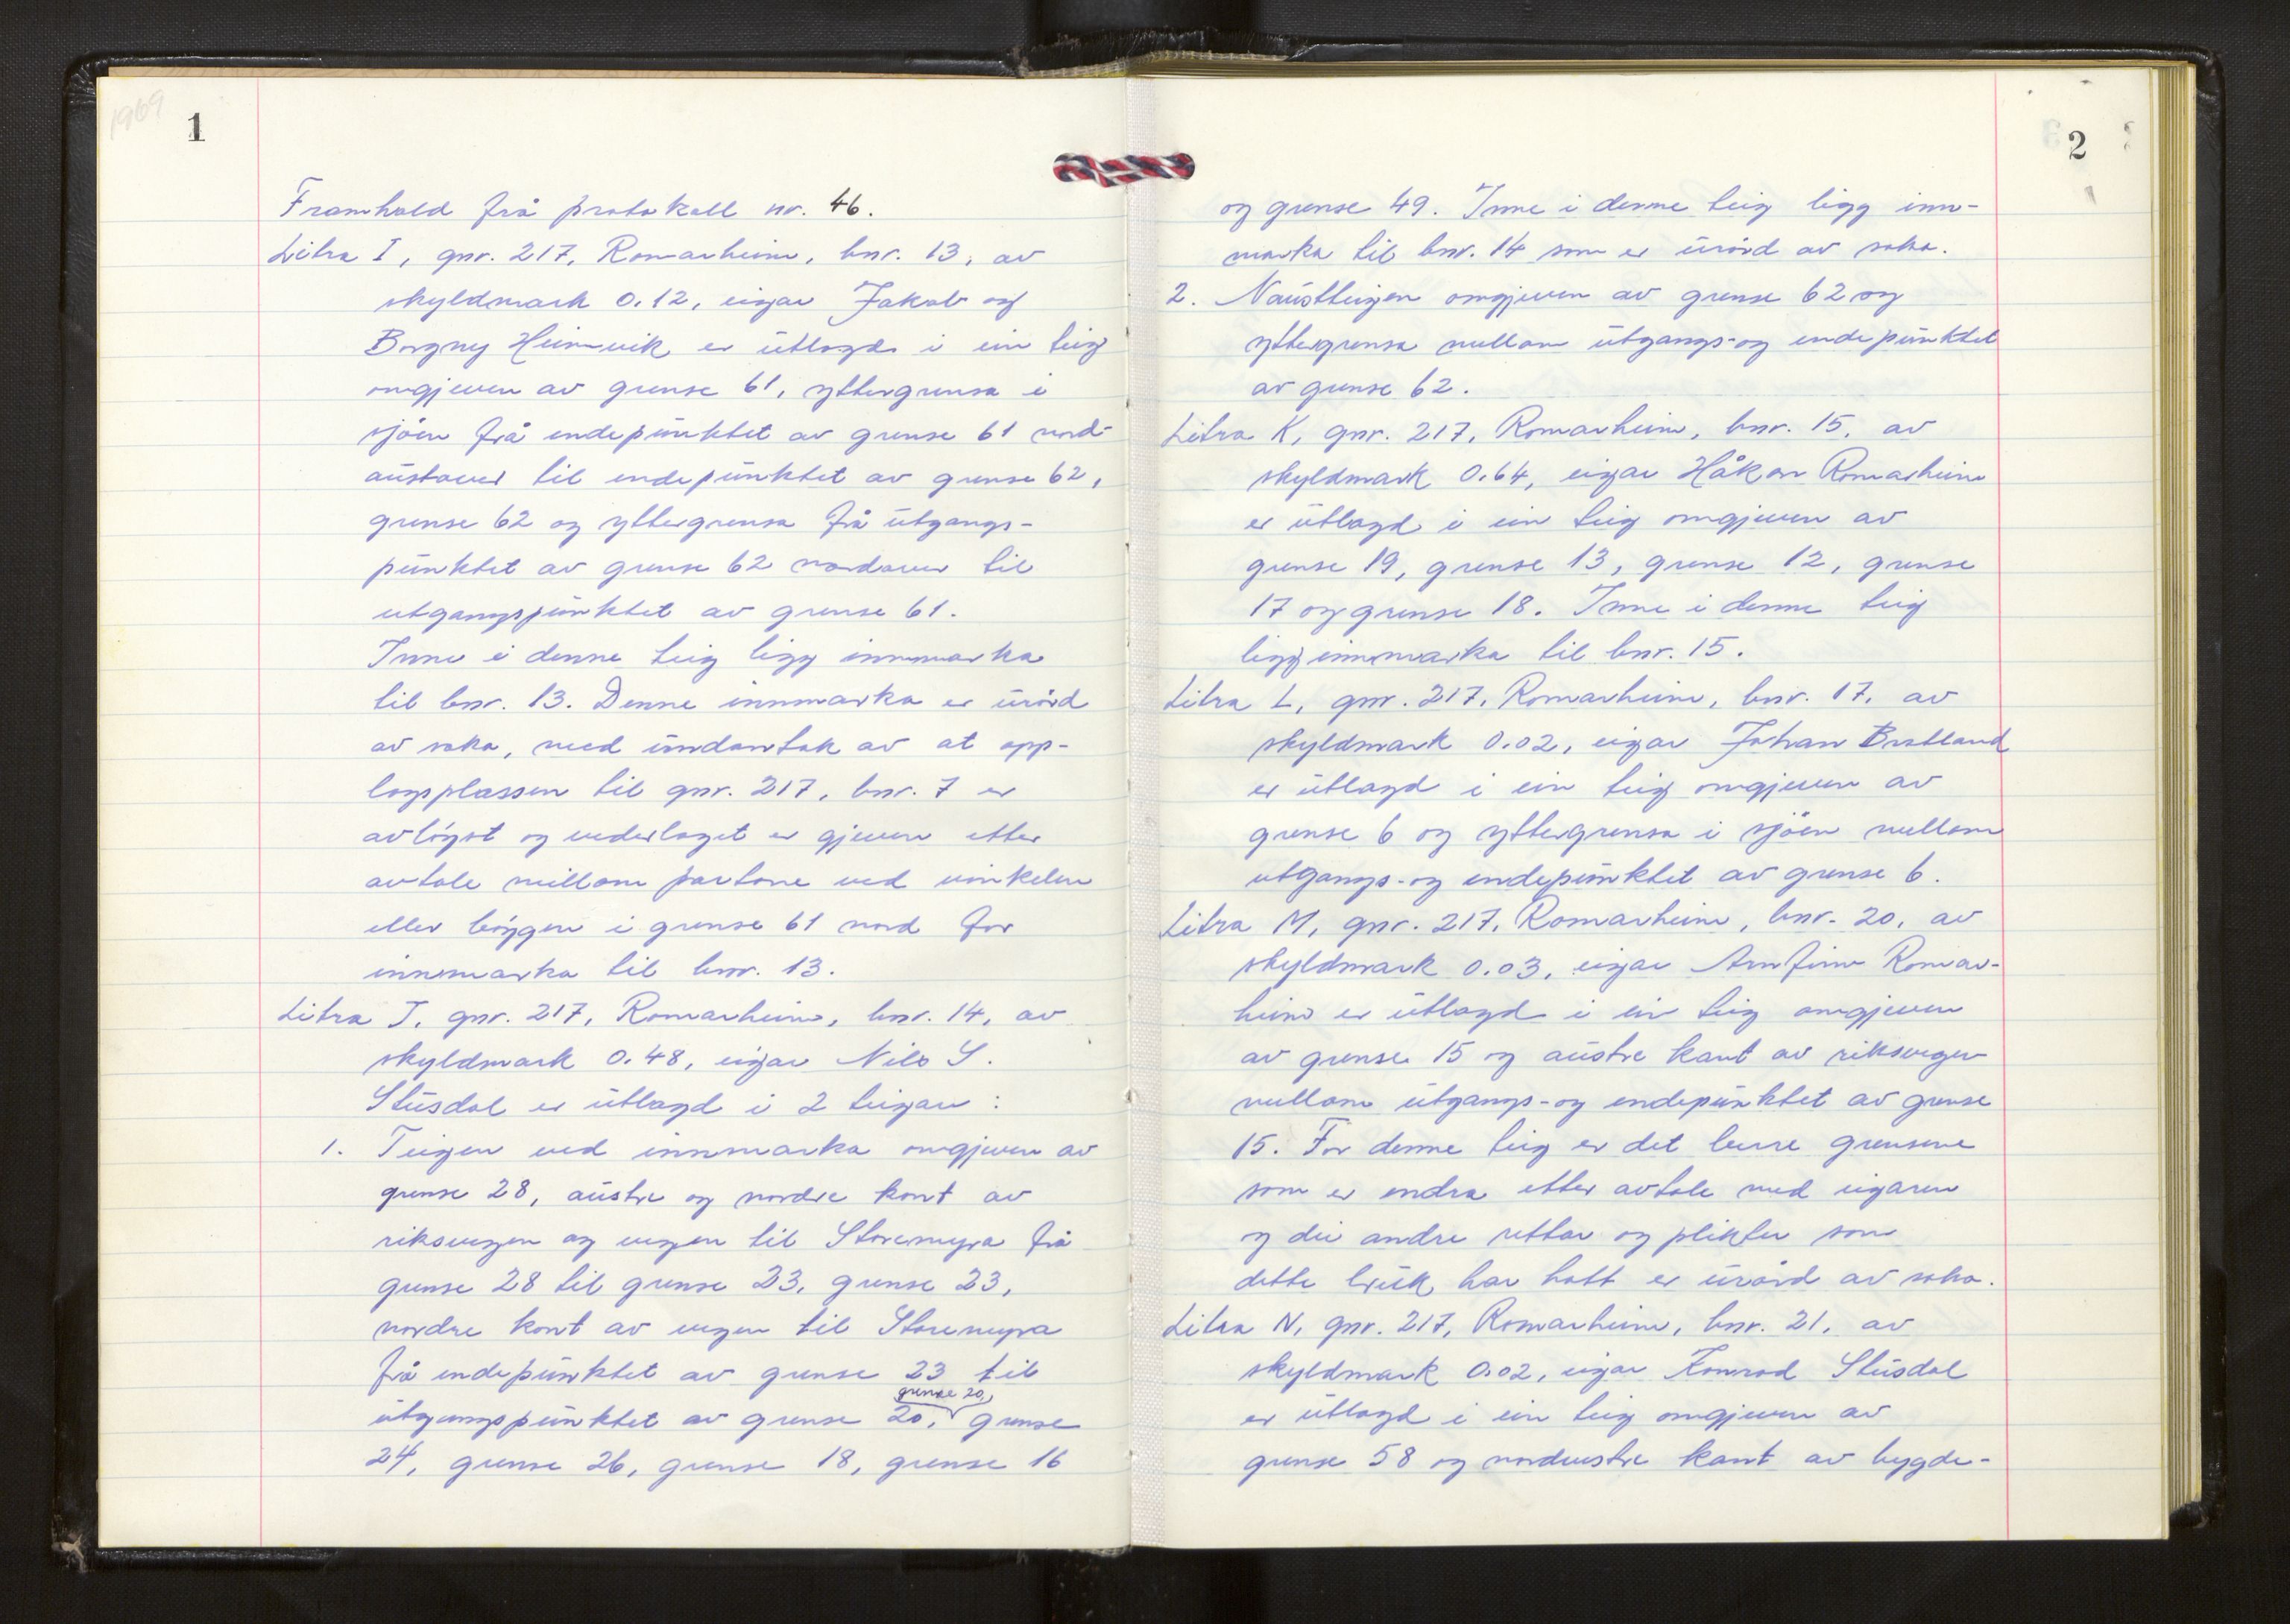 1969
1
Framhald frå protokoll nr. 46.
Litra I, gnr. 217, Romarheim, bnr. 13, av
skyldmark 0.12, eigar Jakob og
Borgny Heimvik er utlagd i ein teig
omgjeven av grense 61, yttergrensa i
sjøen frå endepunktet av grense 61 nord-
austover til endepunktet av grense 62,
grense 62 og yttergrensa frå utgangs-
punktet av grense 62 nordover til
utgangspunktet av grense 61.
Inne i denne teig ligg innmarka
til bnr. 13. Denne innmarka er urørd
av saka, med undantak av at opp-
lagsplassen til gnr. 217, bnr. 7 er
avløyst og vederlaget er gjeven etter
avtale millom partane ved vinkelen
eller bøygen i grense 61 nord for
innmarka til bnr. 13.
Litra J, gnr. 217, Romarheim, bnr. 14, av
skyldmark 0.48, eigar Nils S.
Stusdal er utlagd i 2 teigar:
1. Teigen ved innmarka omgjeven av
grense 28, austre og nordre kant av
riksvegen og vegen til Storemyra frå
grense 28 til grense 23, grense 23,
nordre kant av vegen til Storemyra
frå endepunktet av grense 23 til
grense 20,
utgangspunktet av grense 20, grense
24, grense 26, grense 18, grense 16
2
og grense 49. Inne i denne teig ligg inn-
marka til bnr. 14 som er urørd av saka.
2. Naustteigen omgjeven av grense 62 og
yttergrensa millom utgangs- og endepunktet
av grense 62.
Litra K, gnr. 217, Romarheim, bnr. 15, av
skyldmark 0.64, eigar Håkon Romarheim
er utlagd i ein teig omgjeven av
grense 19, grense 13, grense 12, grense
17 og grense 18. Inne i denne teig
ligg innmarka til bnr. 15.
Litra L, gnr. 217, Romarheim, bnr. 17, av
skyldmark 0.02, eigar Johan Bratland
er utlagd i ein teig omgjeven av
grense 6 og yttergrensa i sjøen millom
utgangs- og endepunktet av grense 6.
Litra M, gnr. 217, Romarheim, bnr. 20, av
skyldmark 0.03, eigar Arnfinn Romar-
heim er utlagd i ein teig omgjeven
av grense 15 og austre kant av riksvegen
millom utgangs- og endepunktet av grense
15. For denne teig er det berre grensene
som er endra etter avtale med eigaren
og dei andre rettar og plikter som
dette bruk har hatt er urørd av saka.
Litra N, gnr. 217, Romarheim, bnr. 21, av
skyldmark 0.02, eigar Konrad Stusdal
er utlagd i ein teig omgjeven av
grense 58 og nordvestre kant av bygde-